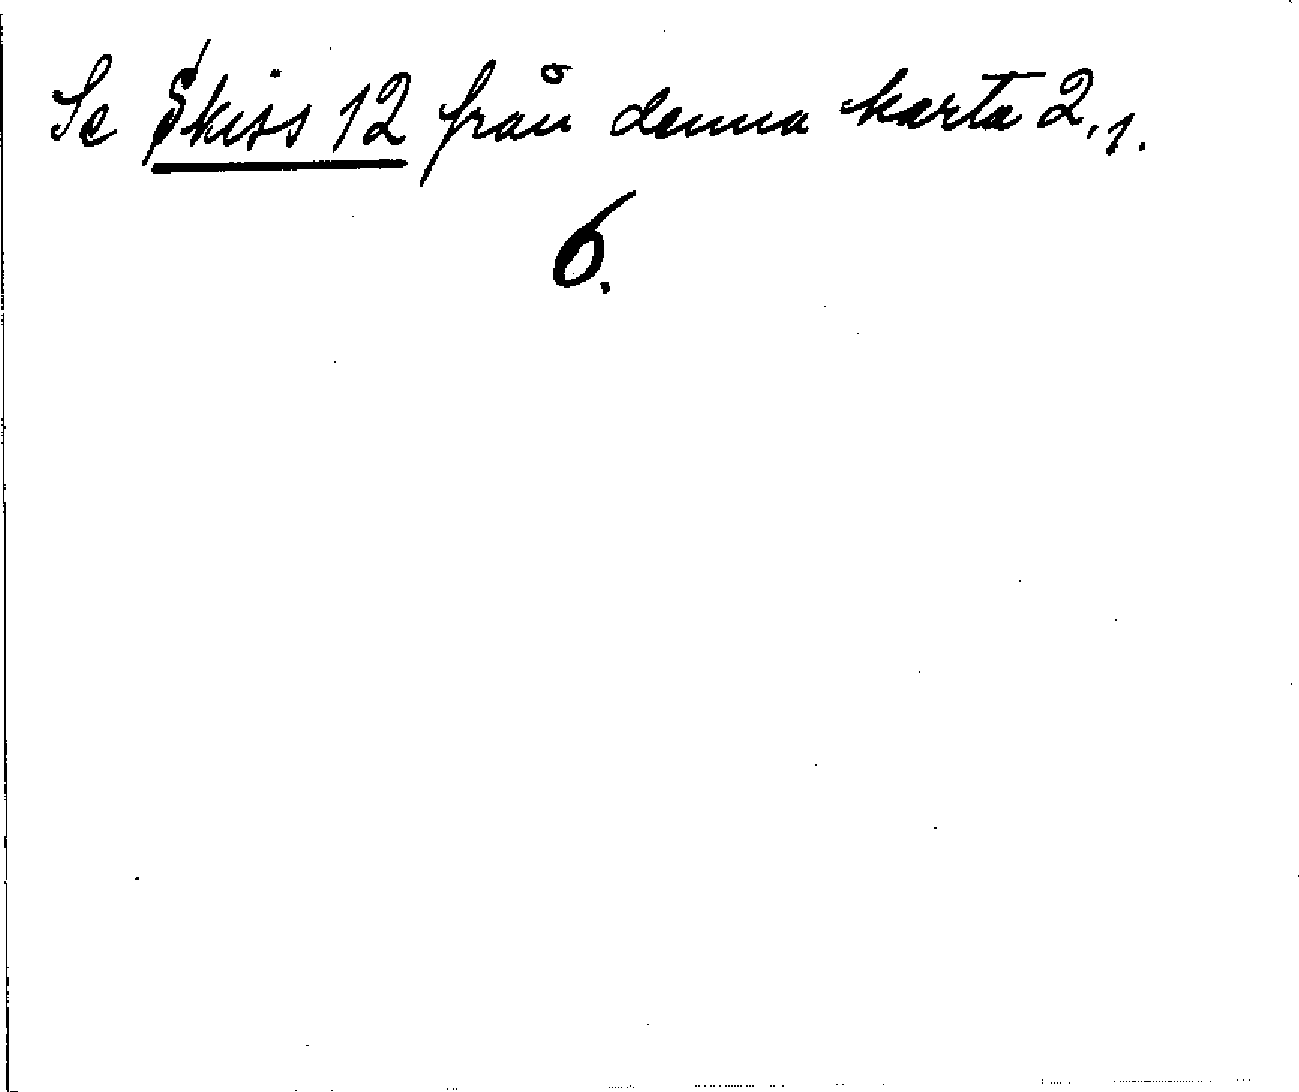 Se Skiss 12 från denna karta 2,1.
6.